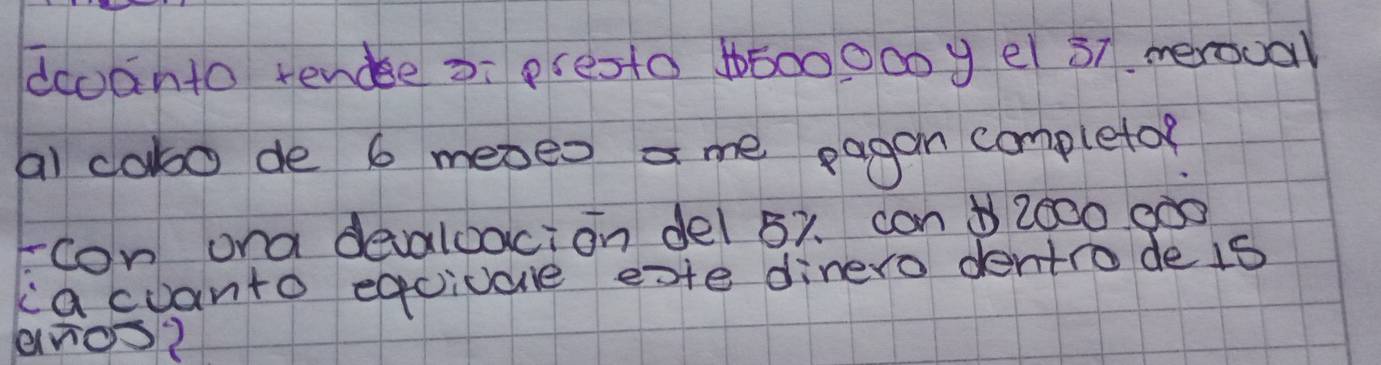 ¿cuánto tendre si presto $500.000 y el 5%. mensual
al cabo de 6 meses me pagan completo?
-con una devaluación del 5% con $2000.000
¿a cuanto equivale este dinero dentro de 15
años?